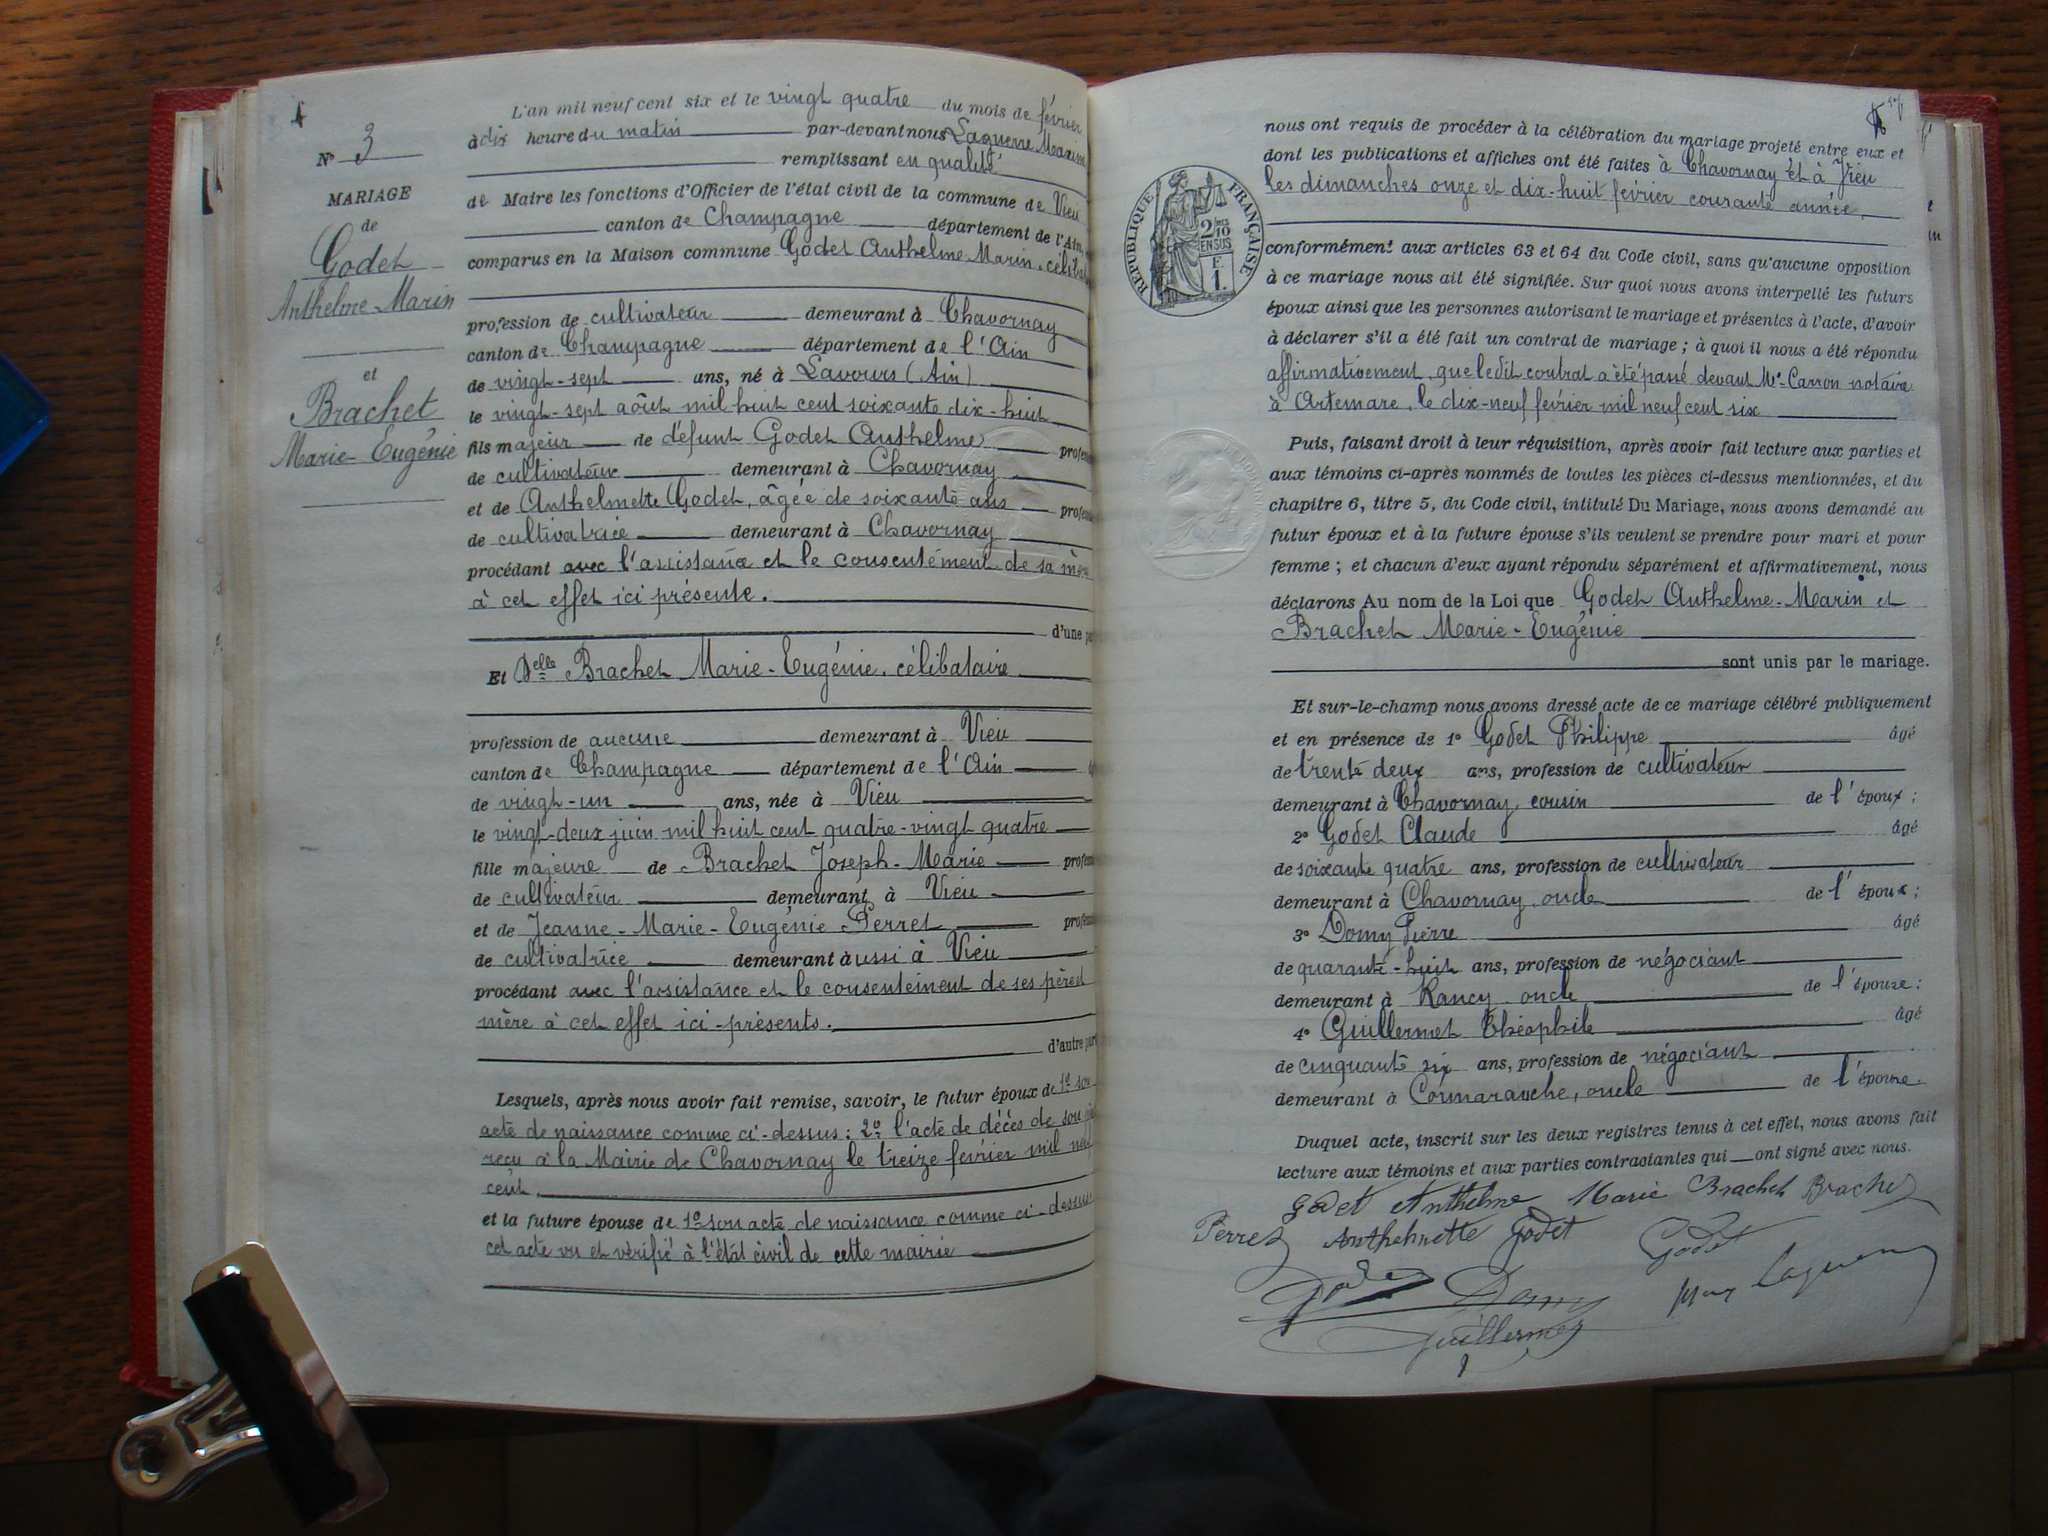 N° 3
MARIAGE
de
Godet
Anthelme-Marin
et
Brachet
Marie-Eugénie
L'an mil neuf cent six et le vingt quatre du mois de février
à dix heure du matin par-devant nous Laguerre Marin
remplissant en qualité
de Maire les fonctions d'Officier de l'état civil de la commune de Vieu
canton de Champagne département de l'Ain,
comparus en la Maison commune Godet Anthelme Marin, célibat
profession de cultivateur demeurant à Chavornay
canton de Champagne département de l'Ain
de vingt-sept ans, né à Lavours (Ain)
le vingt-sept août mil huit cent soixante dix-huit
fils majeur de défunt Godet Anthelme profess
de cultivateur demeurant à Chavornay
et de Anthelmette Godet, âgée de soixante ans profess
de cultivatrice demeurant à Chavornay
procédant avec l'assistance et le consentement de sa mère
à cet effet ici présente.
d'une par
Et Delle Brachet Marie-Eugénie, célibataire
profession de aucune demeurant à Vieu
canton de Champagne département de l'Ain
de vingt-un ans, née à Vieu
le vingt-deux juin mil huit cent quatre-vingt quatre
fille majeure de Brachet Joseph-Marie profess
de cultivateur demeurant à Vieu
et de Jeanne-Marie-Eugénie Perret profess
de cultivatrice demeurant aussi à Vieu
procédant avec l'assistance et le consentement de ses père et
mère à cet effet ici-présents.
d'autre part
Lesquels, après nous avoir fait remise, savoir, le futur époux de 1° son
acte de naissance comme ci-dessus: 2° l'acte de décès de son
reçu à la Mairie de Chavornay le treize février mil neuf
cent
et la future épouse de 1° son acte de naissance comme ci-dessus
cet acte vu et vérifié à l'état civil de cette mairie
RÉPUBLIQUE FRANÇAISE
2/10
EN SUS
E.
1.
nous ont requis de procéder à la célébration du mariage projeté entre eux et
dont les publications et affiches ont été faites à Chavornay et à Vieu
les dimanches onze et dix-huit février courante année,
conformément aux articles 63 et 64 du Code civil, sans qu'aucune opposition
à ce mariage nous ait été signifiée. Sur quoi nous avons interpellé les futurs
époux ainsi que les personnes autorisant le mariage et présentes à l'acte, d'avoir
à déclarer s'il a été fait un contrat de mariage; à quoi il nous a été répondu
affirmativement que ledit contrat a été passé devant Me Carron notaire
à Artemare, le dix-neuf février mil neuf cent six
Puis, faisant droit à leur réquisition, après avoir fait lecture aux parties et
aux témoins ci-après nommés de toutes les pièces ci-dessus mentionnées, et du
chapitre 6, titre 5, du Code civil, intitulé Du Mariage, nous avons demandé au
futur époux et à la future épouse s'ils veulent se prendre pour mari et pour
femme; et chacun d'eux ayant répondu séparément et affirmativement, nous
déclarons Au nom de la Loi que Godet Anthelme-Marin et
Brachet Marie-Eugénie
sont unis par le mariage.
Et sur-le-champ nous avons dressé acte de ce mariage célébré publiquement
et en présence de 1° Godet Philippe âgé
de trente deux ans, profession de cultivateur
demeurant à Chavornay, cousin de l'époux;
2° Godet Claude âgé
de soixante quatre ans, profession de cultivateur
demeurant à Chavornay, oncle de l'époux;
3° Domy Pierre âgé
de quarante-huit ans, profession de négociant
demeurant à Rancy, oncle de l'épouse;
4° Guillermet Théophile âgé
de cinquante six ans, profession de négociant
demeurant à Cormaranche, oncle de l'épouse.
Duquel acte, inscrit sur les deux registres tenus à cet effet, nous avons fait
lecture aux témoins et aux parties contractantes qui ont signé avec nous.
Godet Anthelme Marie Brachet Brachet
Perret Anthelmette Godet Godet
Godet Domy Laguerre
Guillermet